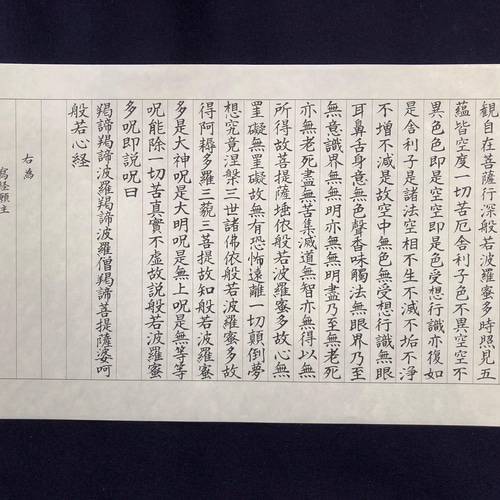 觀自在菩薩行深般若波羅蜜多時照見五
蘊皆空度一切苦厄舎利子色不異空空不
異色色即是空空即是色受想行識亦復如
是舎利子是諸法空相不生不滅不垢不淨
不増不減是故空中無色無受想行識無眼
耳鼻舌身意無色聲香味觸法無眼界乃至
無意識界無無明亦無無明盡乃至無老死
亦無老死盡無苦集滅道無智亦無得以無
所得故菩提薩埵依般若波羅蜜多故心無
罣礙無罣礙故無有恐怖遠離一切顛倒夢
想究竟涅槃三世諸佛依般若波羅蜜多故
得阿耨多羅三藐三菩提故知般若波羅蜜
多是大神呪是大明呪是無上呪是無等等
呪能除一切苦真實不虚故説般若波羅蜜
多呪即説呪曰
羯諦羯諦波羅羯諦波羅僧羯諦菩提薩婆呵
般若心経
右為
寫経願主